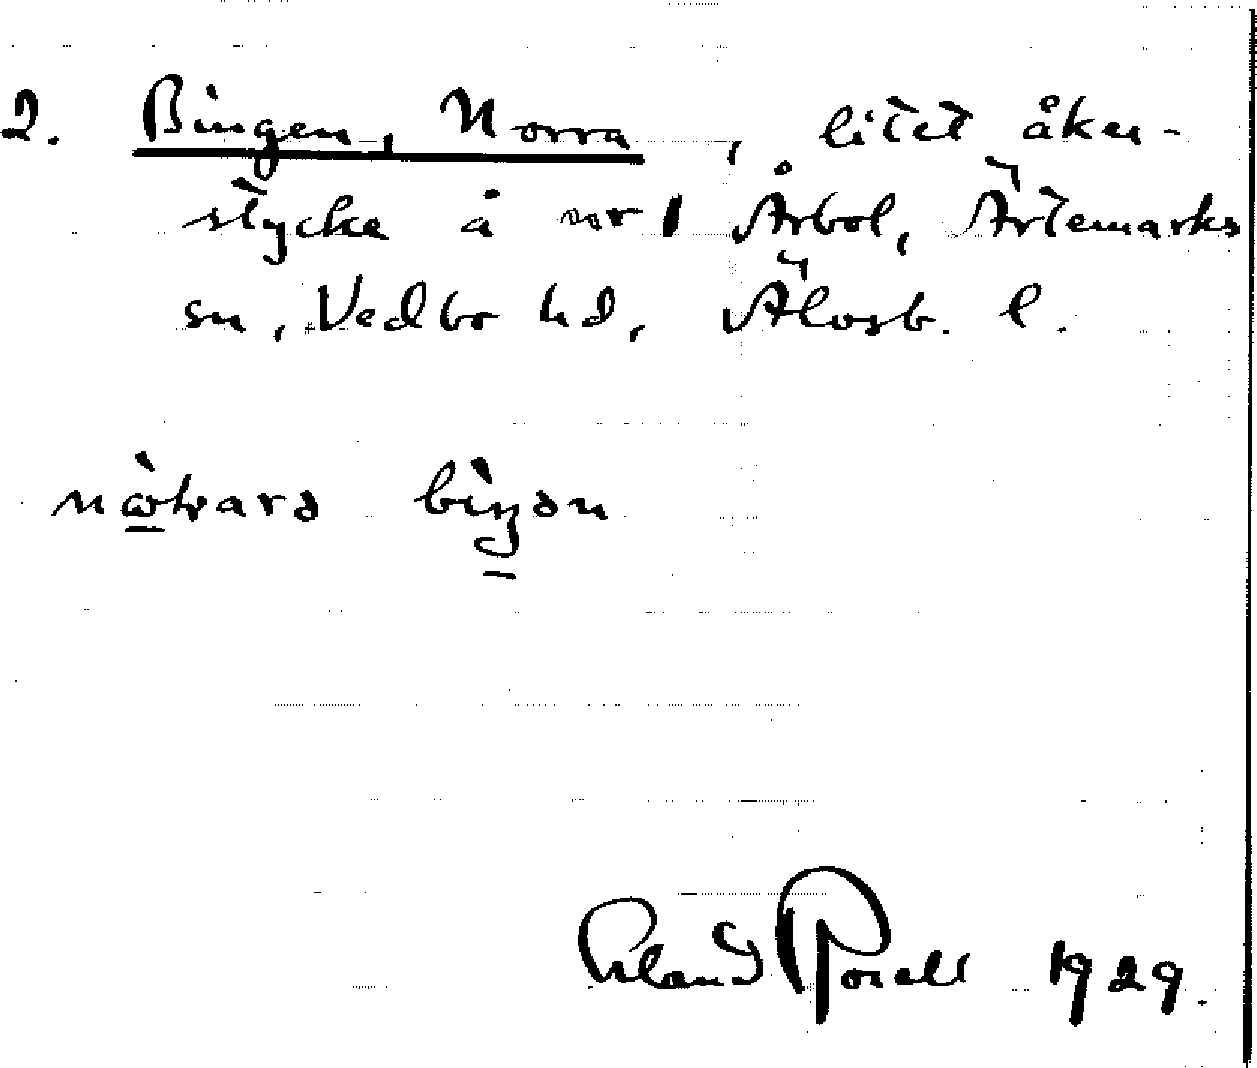 2. Bingen, Norra, litet åker-
stycke å nr 1 Årbol, Ärtemarks
sn, Vedbo hd, Älvsb. l.
bìŋən
Erland Rosell 1929.